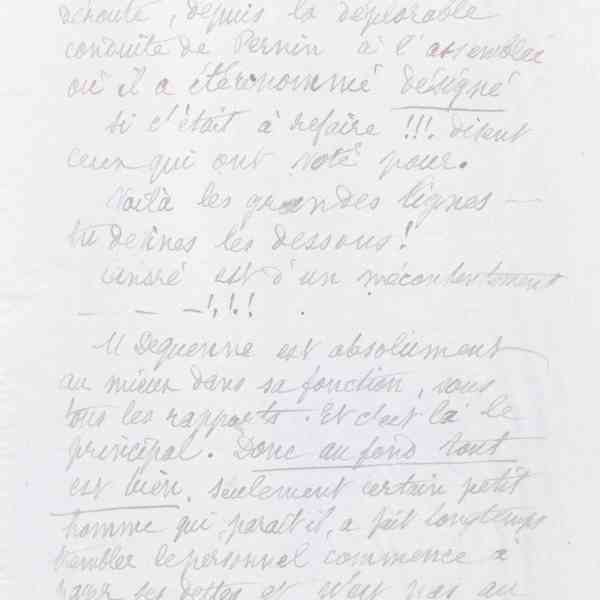 déroute, depuis la déplorable
conduite de Pernin à l'assemblée
où il a été renommé désigné
si c'était à refaire !!! disent
ceux qui ont voté pour.
Voilà les grandes lignes —
tu devines les dessous !
André est d'un mécontentement
— — — !!!! .
M Dequenne est absolument
au mieux dans sa fonction, sous
tous les rapports. Et c'est là le
principal. Donc au fond tout
est bien, seulement certain petit
homme qui, paraît il, a fait longtemps
trembler le personnel commence a
payer ses dettes et n'est pas au